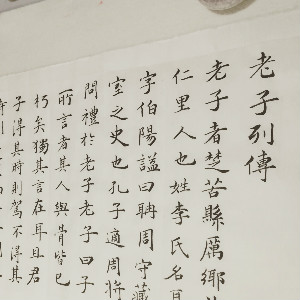 老子列傳
老子者楚苦縣厲鄉
仁里人也姓李氏名耳
字伯陽謚曰聃周守藏
室之史也孔子適周將
問禮於老子老子曰子
所言者其人與骨皆已
朽矣獨其言在耳且君
子得其時則駕不得其